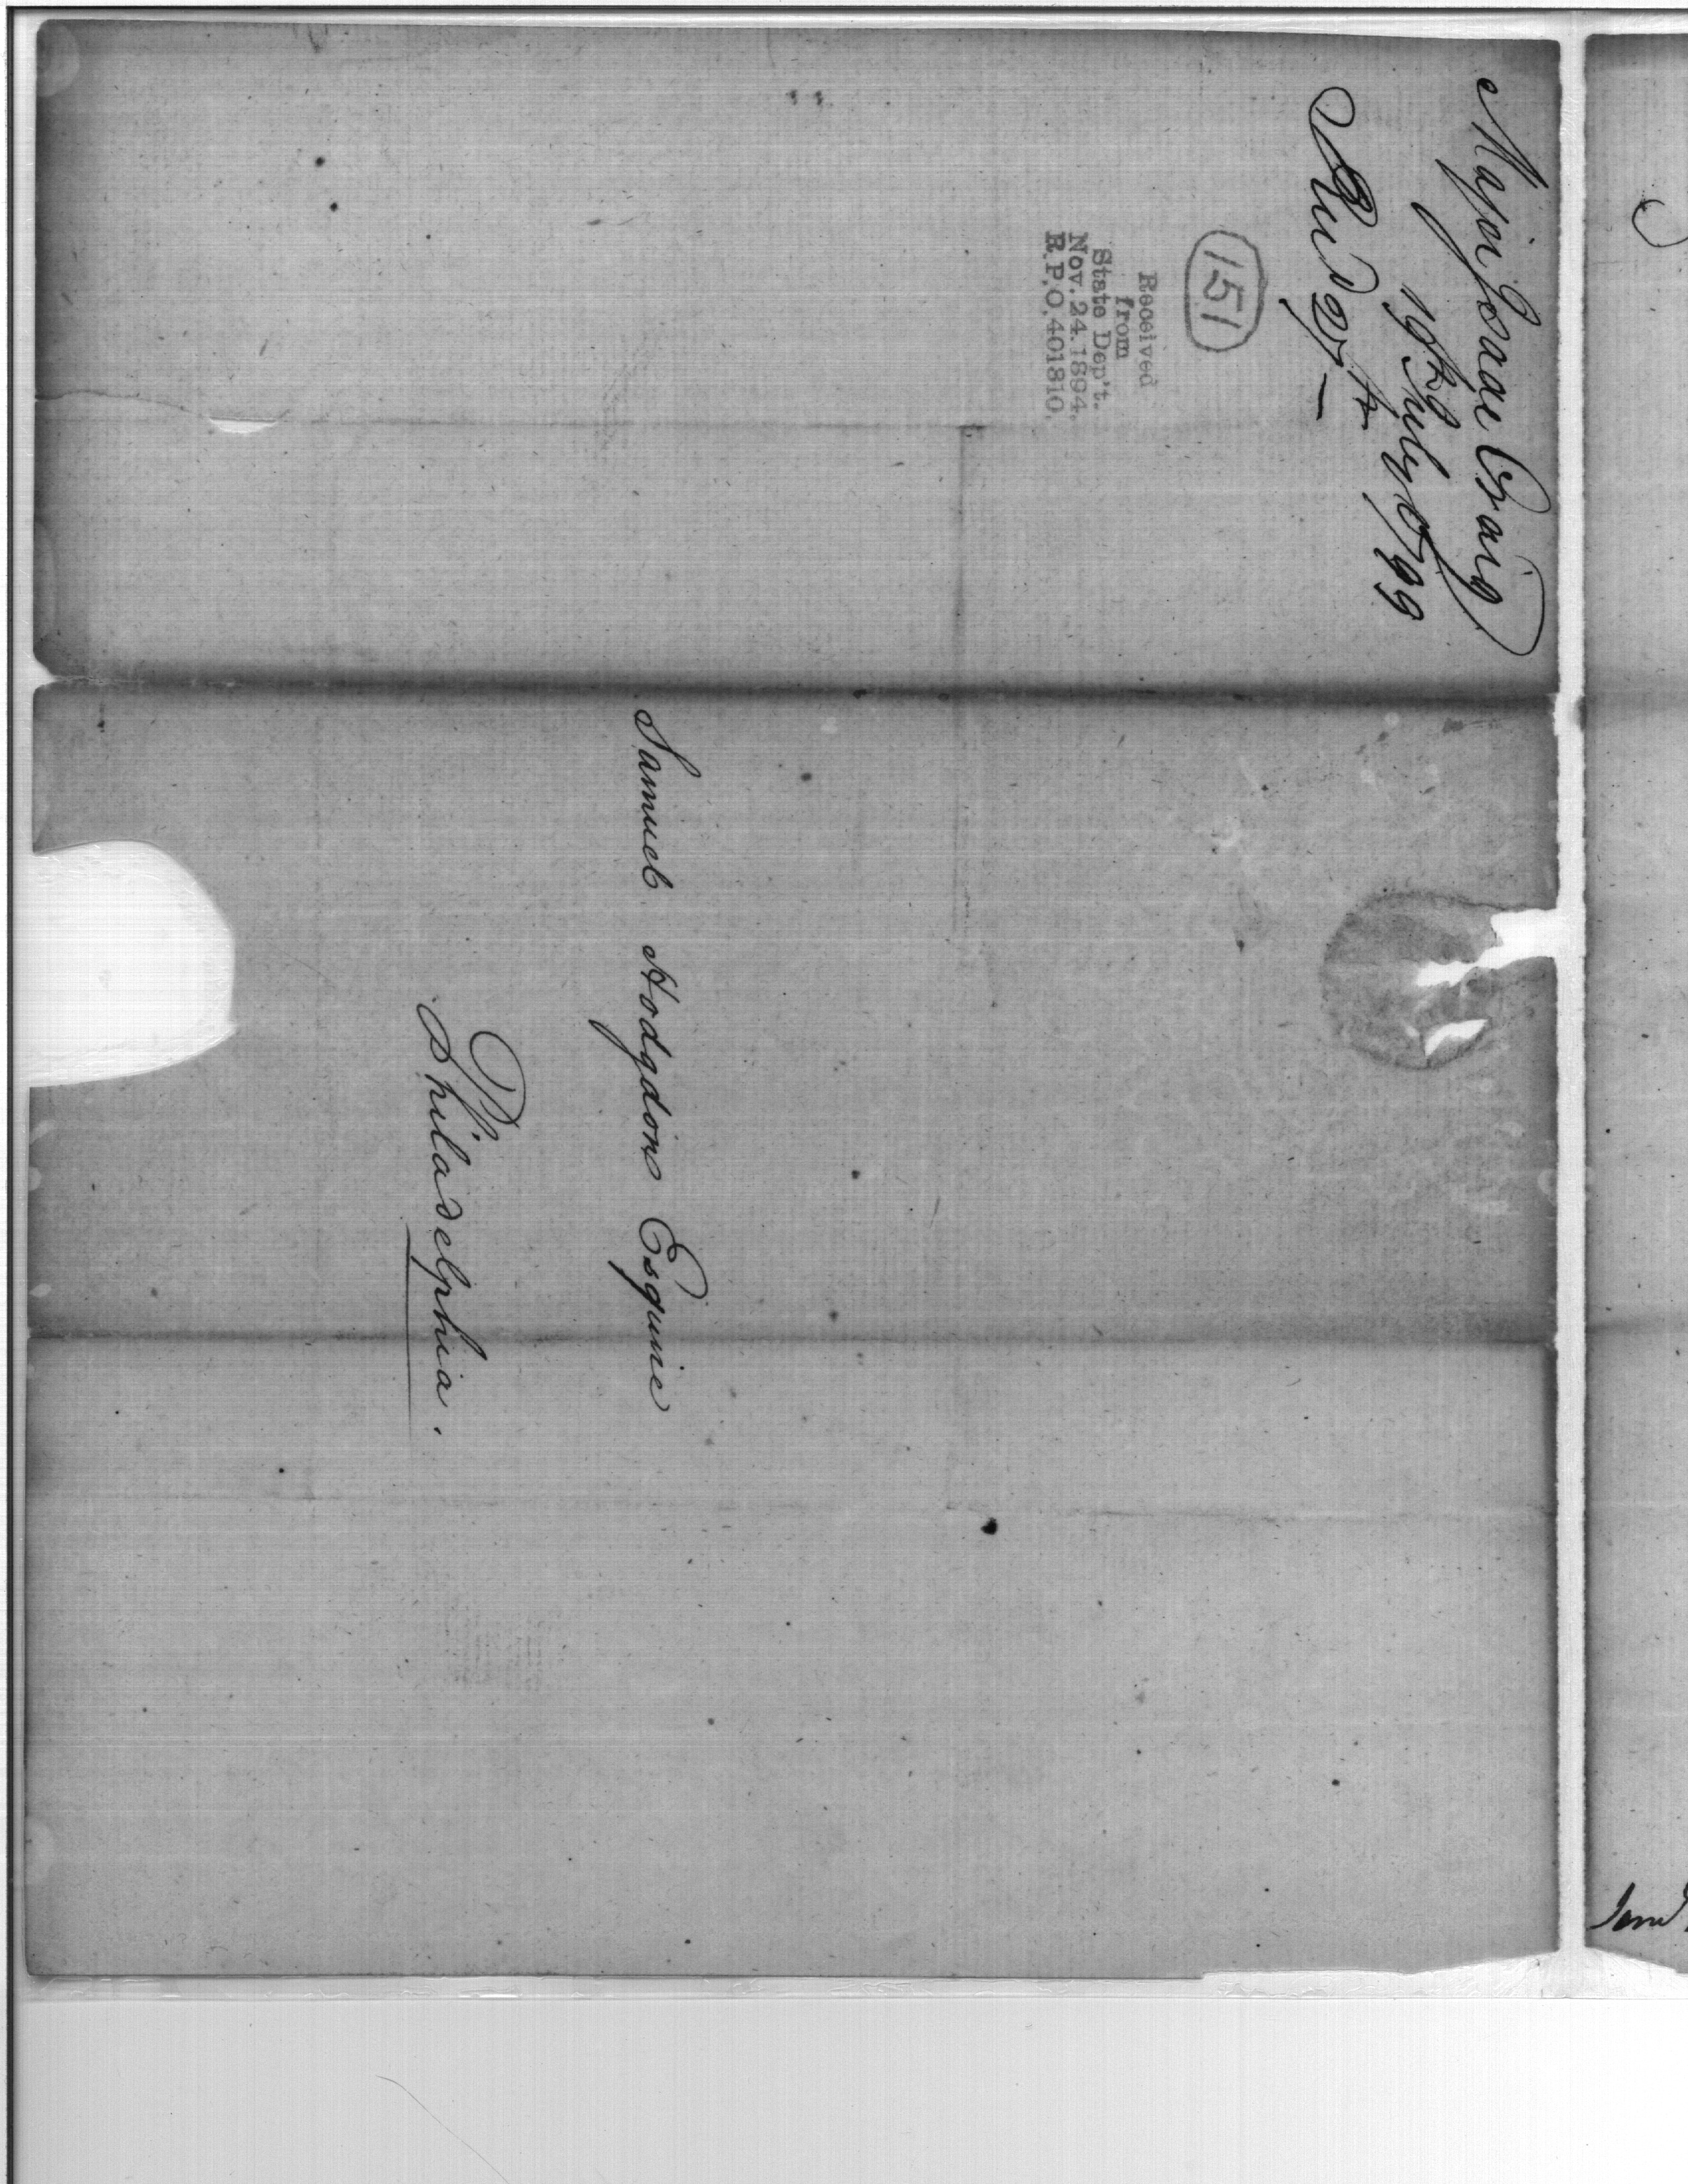 Major Isaac Craig
19th July 1799
Recd 27th —
151
Received
from
State Dep't.
Nov. 24. 1894.
R.P.O. 401810.
Samuel Hodgdon Esquire
Philadelphia.